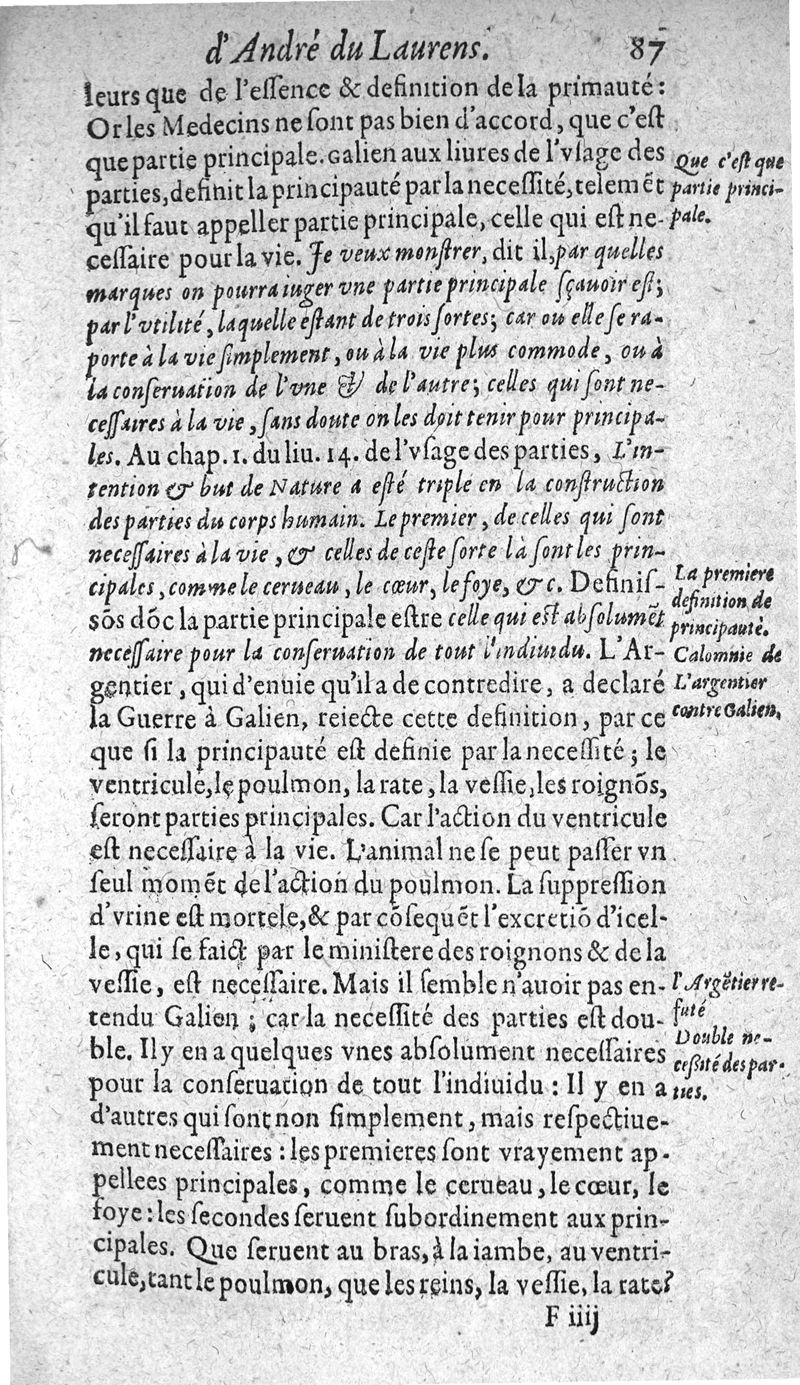 d'André du Laurens. 87
leurs que de l'eſſence & definition de la primauté :
Or les Medecins ne ſont pas bien d'accord, que c'eſt
que partie principale. Galien aux liures de l'vſage des
parties, definit la principauté par la neceſſité, telemẽt
qu'il faut appeller partie principale, celle qui eſt ne-
ceſſaire pour la vie. Je veux monſtrer, dit il, par quelles
marques on pourra iuger vne partie principale ſçauoir eſt;
par l'vtilité, laquelle eſtant de trois ſortes; car ou elle ſe ra-
porte à la vie ſimplement, ou à la vie plus commode, ou à
la conſeruation de l'vne & de l'autre; celles qui ſont ne-
ceſſaires à la vie, ſans doute on les doit tenir pour principa-
les. Au chap. 1. du liu. 14. de l'vſage des parties, L'in-
tention & but de Nature a eſté triple en la conſtruction
des parties du corps humain. Le premier, de celles qui ſont
neceſſaires à la vie, & celles de ceſte ſorte là ſont les prin-
cipales, comme le cerueau, le cœur, le foye, & c. Definiſ-
sõs dõc la partie principale eſtre celle qui eſt abſolumẽt
neceſſaire pour la conſeruation de tout l'indiuidu. L'Ar-
gentier, qui d'enuie qu'il a de contredire, a declaré
la Guerre à Galien, reiecte cette definition, par ce
que ſi la principauté eſt definie par la neceſſité; le
ventricule, le poulmon, la rate, la veſſie, les roignõs,
ſeront parties principales. Car l'action du ventricule
eſt neceſſaire à la vie. L'animal ne ſe peut paſſer vn
ſeul momẽt de l'action du poulmon. La ſuppreſſion
d'vrine eſt mortele, & par cõſequẽt l'excretiõ d'icel-
le, qui ſe faict par le miniſtere des roignons & de la
veſſie, eſt neceſſaire. Mais il ſemble n'auoir pas en-
tendu Galien; car la neceſſité des parties eſt dou-
ble. Il y en a quelques vnes abſolument neceſſaires
pour la conſeruation de tout l'indiuidu : Il y en a
d'autres qui ſont non ſimplement, mais reſpectiue-
ment neceſſaires : les premieres ſont vrayement ap-
pellees principales, comme le cerueau, le cœur, le
foye : les ſecondes ſeruent ſubordinement aux prin-
cipales. Que ſeruent au bras, à la iambe, au ventri-
cule, tant le poulmon, que les reins, la veſſie, la rate?
F iiij
Que c'eſt que
partie princi-
pale.
La premiere
definition de
principauté.
Calomnie de
L'argentier
contre Galien,
l'Argẽtier re-
futé
Double ne-
ceſſité des par-
ties.